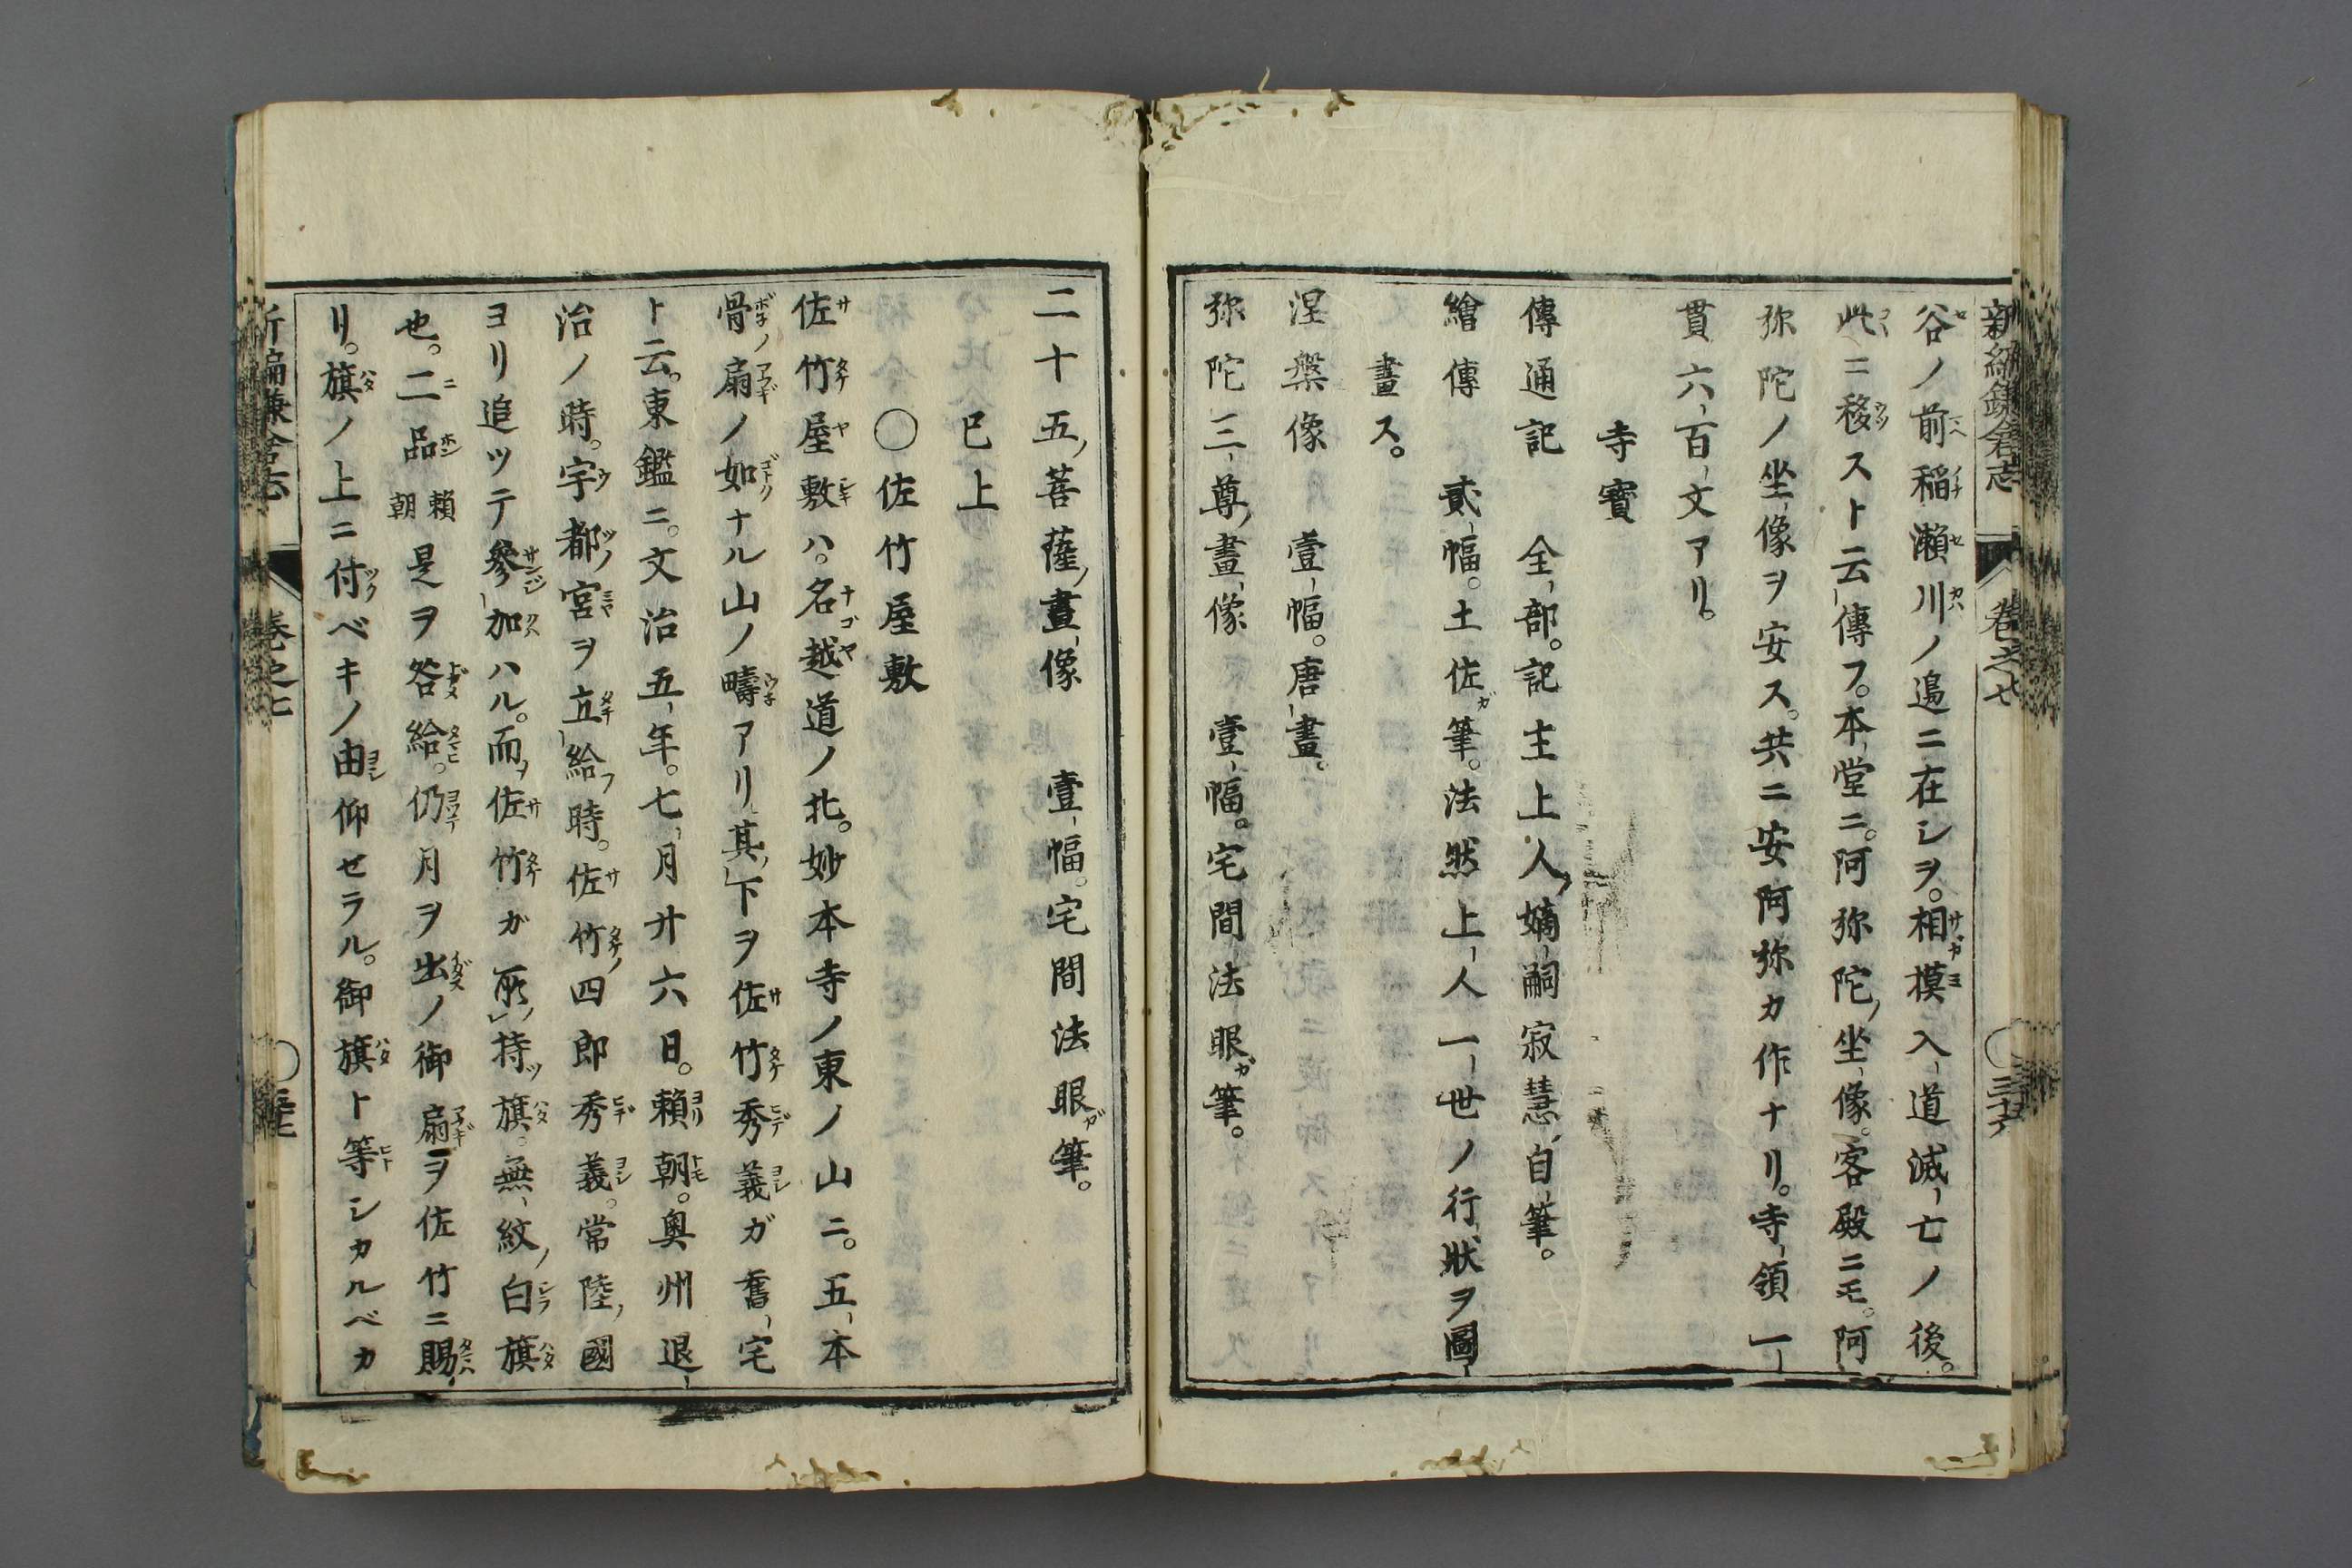 新編鎌倉志　卷之七
谷ノ前稲瀬川ノ邉ニ在シヲ。相摸入道滅亡ノ後。
此ニ移スト云傳フ。本堂ニ。阿弥陀ノ坐像。客殿ニモ。阿
弥陀ノ坐像ヲ安ス。共ニ安阿弥カ作ナリ。寺領一
貫六百文アリ。
寺寳
傳通記　全部。記主上人ノ嫡嗣寂慧自筆。
繪傳　貳幅。土佐ガ筆。法然上人一世ノ行狀ヲ圖
畫ス。
涅槃像　壹幅。唐畫。
弥陀三尊ノ畫像　壹幅。宅間法眼ガ筆。
二十五ノ菩薩ノ畫像　壹幅。宅間法眼ガ筆。
巳上
〇佐竹屋敷
佐竹屋敷ハ。名越道ノ北。妙本寺ノ東ノ山ニ。五本
骨ノ扇ノ如ナル山ノ疇アリ其ノ下ヲ佐竹秀義ガ舊宅
ト云。東鑑ニ。文治五年。七月廾六日。頼朝。奥州退
治ノ時。宇都宮ヲ立給フ時。佐竹四郎秀義。常陸ノ國
ヨリ追ツテ參加ハル。而ヲ佐竹ガ所ノ持ツ旗。無紋ノ白旗
也。二品頼朝是ヲ咎給。仍月ヲ出ノ御扇ヲ佐竹ニ賜
リ。旗ノ上ニ付ベキノ由仰セラル。御旗ト等シカルベカ
新編鎌倉志　卷之七